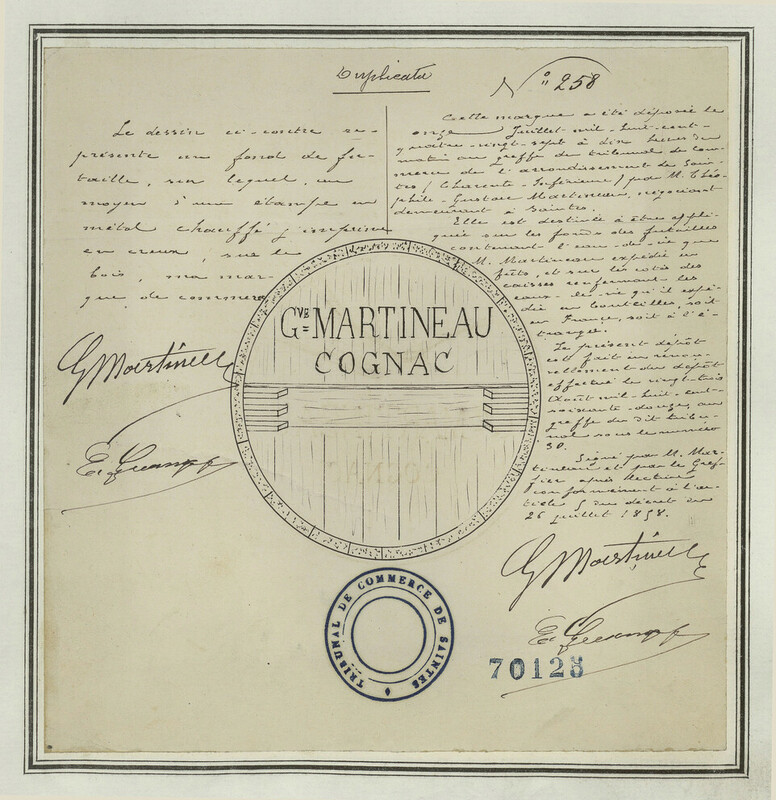 Duplicata
N° 258
Le dessin ci-contre re-
présente un fond de fu-
taille, sur lequel, au
moyen d'une étampe en
métal chauffé j'imprime
en creux, sur le
bois, ma mar-
que de commerce
G Martineau
Cette marque a été déposée le
onze Juillet mil-huit-cent-
quatre-vingt-sept à dix heures du
matin au greffe du tribunal de Com-
merce de l'arrondissement de Sain-
tes (Charente-Inférieure) par M. Théo-
phile-Gustave Martineau, négociant
demeurant à Saintes.
Elle est destinée à être appli-
quée sur les fonds des futailles
contenant l'eau-de-vie que
M. Martineau expédie en
fûts, et sur les cotés des
caisses renfermant les
eaux-de-vie qu'il expé-
die en bouteilles, soit
en France, soit à l'é-
tranger.
Le présent dépôt
est fait en renou-
vellement du dépôt
effectué le vingt-trois
Août mil-huit-cent-
soixante-douze, au
greffe du dit tribu-
nal sous le numéro
30.
Signé par M. Mar-
tineau et par le Gref-
fier après lecture
conformément à l'ar-
ticle 5 du décret du
26 juillet 1858.
G Martineau
GVE MARTINEAU
COGNAC
TRIBUNAL DE COMMERCE DE SAINTES
70125